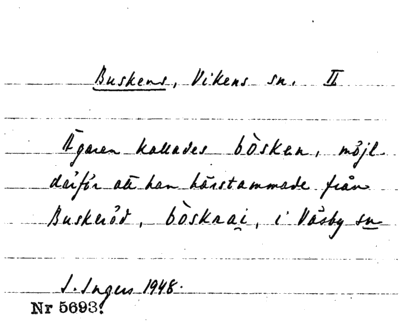 Buskens, Vikens sn. II
Ägaren kallades bòsken, möjl.
därför att han härstammade från
Buskeröd, bòskraai, i Väsby sn
I. Ingers 1948.
Nr 5693.